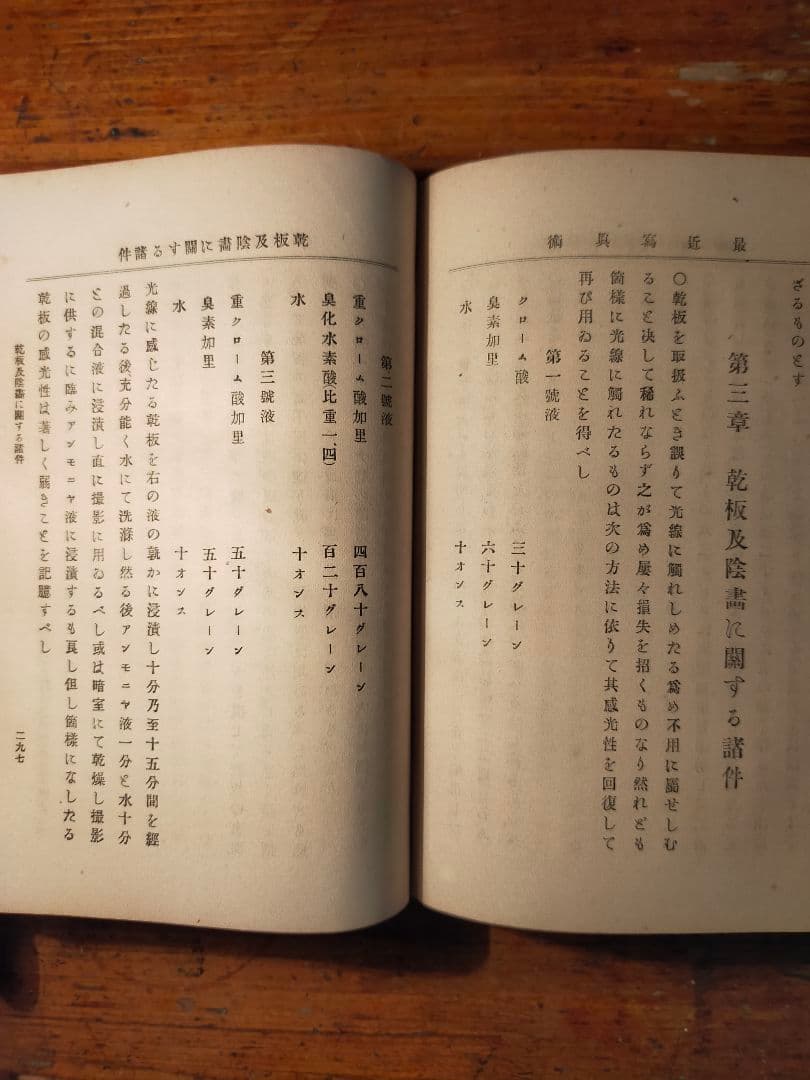 最近寫眞術
ざるものとす
第三章　乾板及陰畫に關する諸件
〇乾板を取扱ふとき誤りて光線に觸れしめたる爲め不用に屬せしむ
ること決して稀れならず之が爲め屡々損失を招くものなり然れども
箇樣に光線に觸れたるものは次の方法に依りて其感光性を回復して
再び用ゐることを得べし
第一號液
クローム酸　三十グレーン
臭素加里　六十グレーン
水　十オンス
乾板及陰畫に關する諸件
第二號液
重クローム酸加里　四百八十グレーン
臭化水素酸（比重一、四）　百二十グレーン
水　十オンス
第三號液
重クローム酸加里　五十グレーン
臭素加里　五十グレーン
水　十オンス
光線に感じたる乾板を右の液の孰かに浸漬し十分乃至十五分間を經
過したる後、充分能く水にて洗滌し然る後アンモニヤ液一分と水十分
との混合液に浸漬し直に撮影に用ゐるべし或は暗室にて乾燥し撮影
に供するに臨みアンモニヤ液に浸漬するも良し但し箇樣になしたる
乾板の感光性は著しく弱きことを記臆すべし
乾板及陰畫に關する諸件
二九七